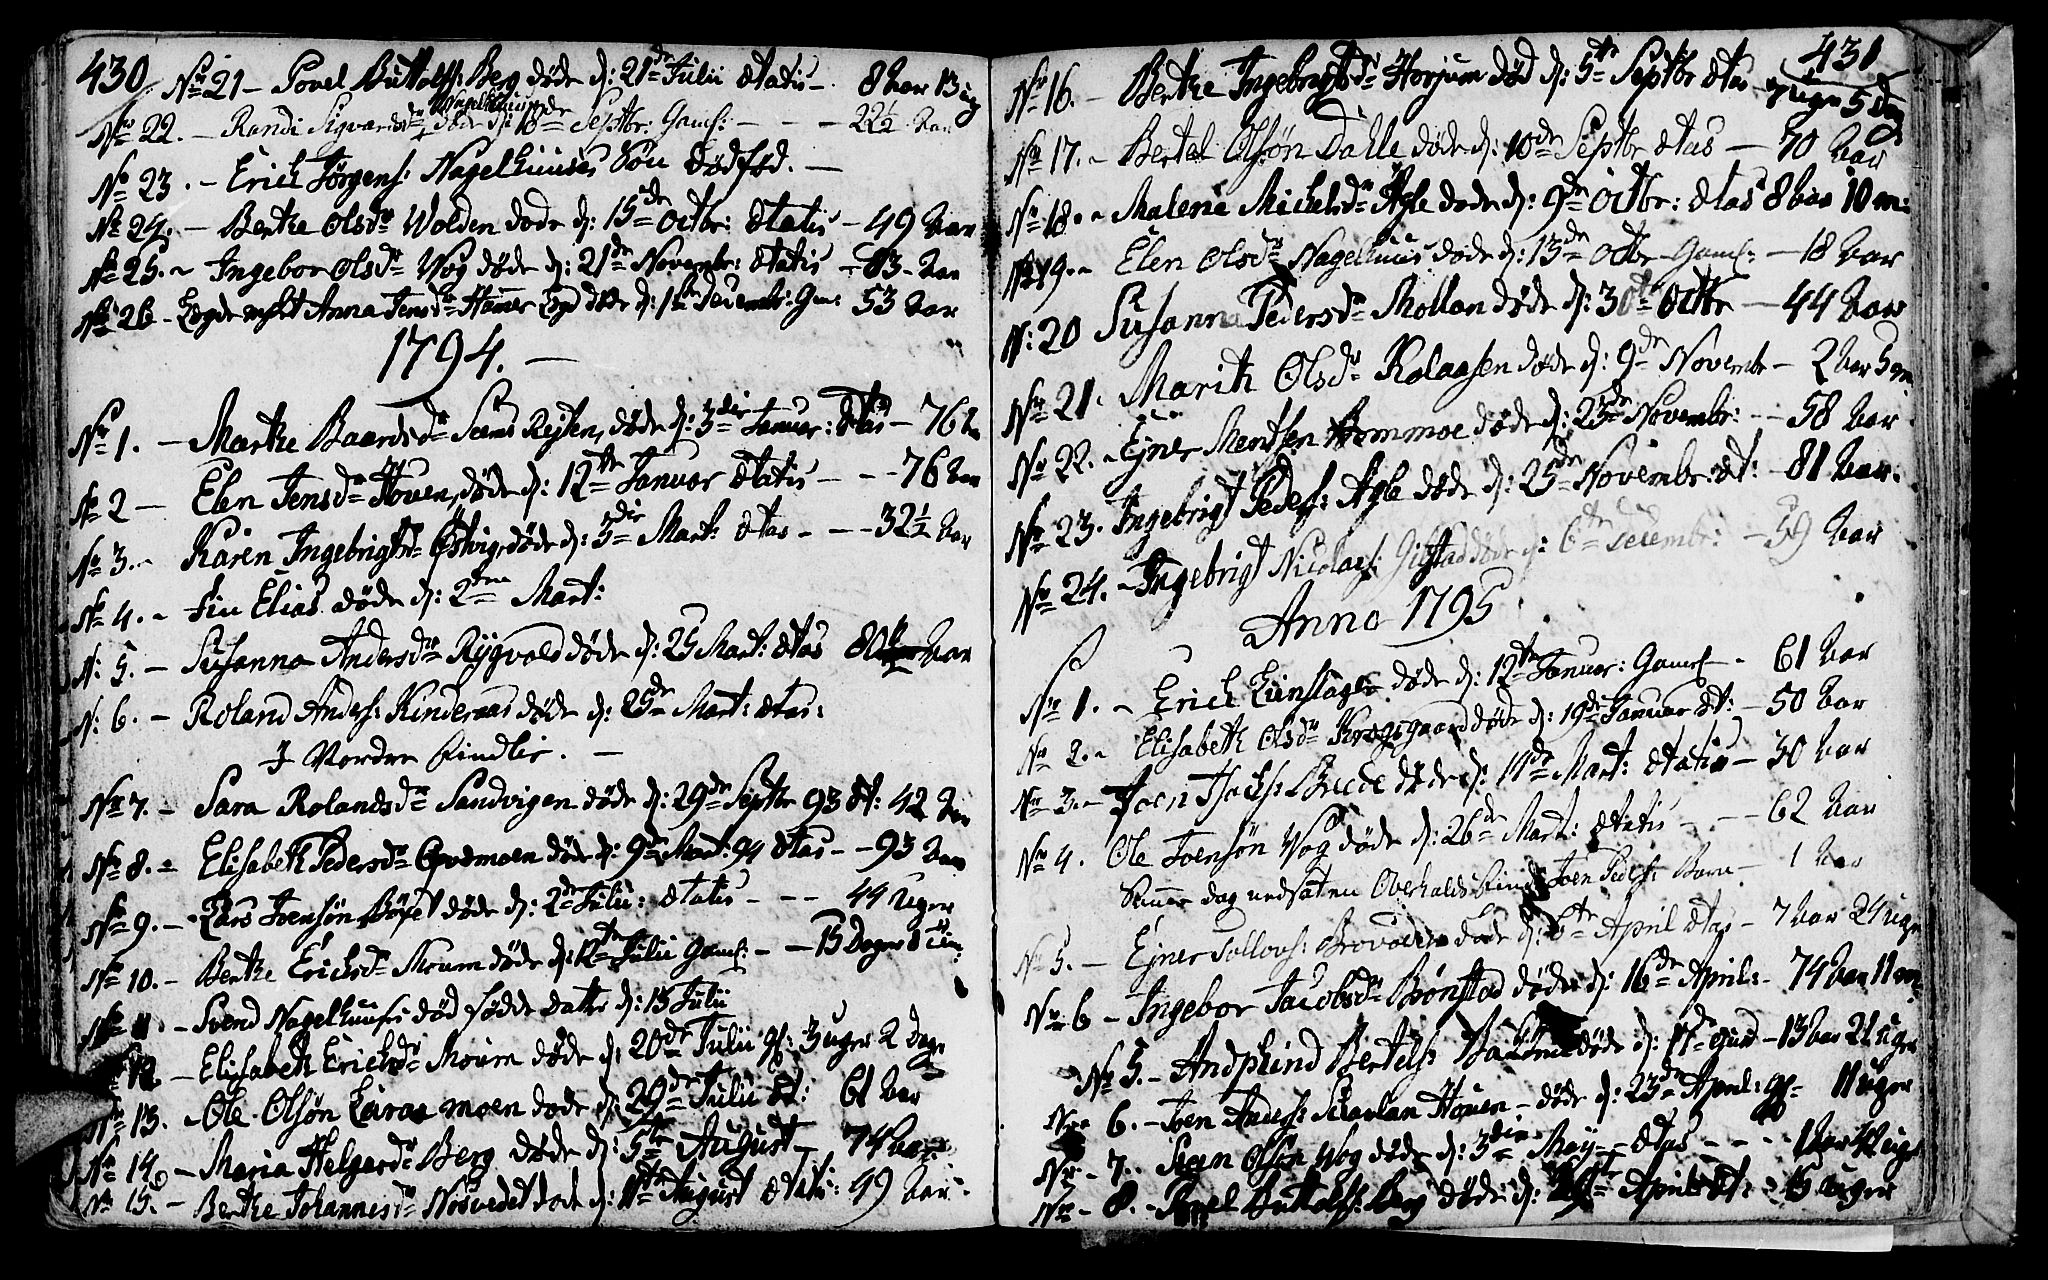 430
No 21 – Povel Buttolfs: Berg døde d: 21de Julii ætatis – 8 Aar 13 ug
Nagelhuus
No 22. – Randi Sigvardsdr døde d: 18de Septbr: Gaml: – – – 22½ Aar
No 23. – Erich Jørgens: Nagelhuuses Søn dødfød. –
No 24. – Berthe Olsdr Wolden døde d: 15de Octbr: ætatis – 49 Aar
No 25. – Ingebor Olsdr Wog døde d: 21de Novembr: ætatis – 83 – Aar
No 26 – Anna Jensdr døde d: 1ste Decembr: Gm: 53 Aar
1794. –
No 1. – Marthe Baardsdr Seems Rejten, døde d: 3die Januar: ætas – 76 Aar
No 2 – Elen Jensdr Houen, døde d: 12te Januar ætatis – – 76 Aar
No 3. – Karen Ingebrigtsdr Østvig døde d: 3die Mart: ætas – – – 32½ Aar
No 4. – Fin Elias døde d: 2den Mart:
N: 5. – Susanna Andersdr Rygvold døde d: 25 Mart: ætas 80 Aar
N: 6. – Roland Anders: Kindernaas døde d: 25de Mart: ætas:
I Nordre Finlie. –
No 7. – Sara Rolandsdr Sandvigen døde d: 29de Septbr 93 æt: 42 Aar
No 8. – Elisabeth Pedersdr moen døde d: 9de Mart: 94 ætas – – 93 Aar
No 9. – Lars Joensøn døde d: 2de Julii: ætatis – – – 44 Uger
No 10. – Berthe Erichsdr Moum døde d: 12te Julii Gaml: – – 15 Dage
No 11. – Svend Nagelhuuses død fødde Datter d: 15 Julii
12. – Elisabeth Erichsdr Moum døde d: 20de Julii gl: 3 uger 2 Dage
No 13. – Ole Olsøn moen døde d: 29de Julii æt: 61 Aar
No 14. – Maria Helgesdr Berg døde d: 5te August – 74 Aar
No 15. – Berthe Johannesdr Nosvedet døde d: August ætatis: 49 Aar.
431
No 16. – Berthe Ingebrigtsdr Horjum død d: 5te Septbr ætas – 7 uger 5 dag
No 17. – Bertel Olsøn Dalle døde d: 10de Septbr ætas – 70 Aar
No 18. – Malene Michelsdr Agle døde d: 9de Octbr: ætas 8 Aar 10 m:
No 19. – Elen Olsdr Nagelhuus døde d: 13de Octbr Gaml: – 18 Aar
N: 20 Susanna Pedersdr Mollan døde d: 30te Octbr – 44 Aar
No 21. Marith Olsdr Rolaasen døde d: 9de Novembr – 2 Aar 5 m
No 22. – Ejner Mentsen Hemmoe døde d: 23de Novembr: – – 58 Aar
No 23. Ingebrigt Peders: Agle døde d: 25de Novembr: æt: – 81 Aar.
No 24. – Ingebrigt Nicolais: Gifstad døde d: 6te Decembr: – 59 Aar
Anno 1795
No 1. – Erich døde d: 12te Januar: Gaml – 61 Aar
No 2. – Elisabeth Olsdr Krogsgaard døde d: 19de Januar æt: – 50 Aar
No 3. – Joen døde d: 11de Mart: ætatis – 30 Aar
No 4. Ole Joensøn Wog døde d: 26de Mart: ætatis – – – 62 Aar
Samme dag nedsatnu Overhalds Joen Peders: Barn – 1 Aar
No 5. – Ejner døde d: 6te April ætas – 7 Aar 24 uger
No 6 – Ingebor Jacobsdr Brønstad døde d: 16de April: – 74 Aar 11 m:
No 5. – Andphind Bertels: døde d: – 13 Aar 21 uger
No 6. – Joen Anders: Houen – døde d: 23de April: gl – 11 uger
No 7. Olsøn Wog døde d: 3die May – ætas – – – 1 Aar uger
No 8. – Povel Buttolfs: Berg døde d: April æt: – 15 uger